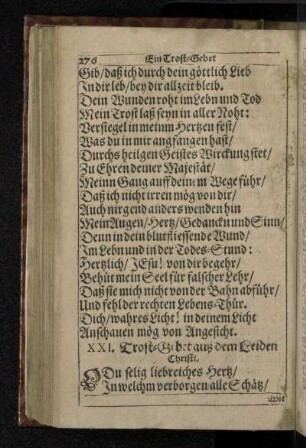 276 Ein Trost-Gebet
Gib/ daß ich durch dein göttlich Lieb
In dir leb/ bey dir allzeit bleib.
Dein Wunden roht im Lebn und Tod
Mein Trost laß seyn in aller Noht:
Versiegel in meinm Hertzen fest/
Was du in mir angfangen hast/
Durchs heilgen Geistes Wirckung stet/
Zu Ehren deiner Majestät/
Meinn Gang auff deinem Wege führ/
Daß ich nicht irren mög von dir/
Auch nirgend anders wenden hin
Mein Augen/ Hertz/ Gedanckn und Sinn/
Denn in dein blutfliessende Wund/
Im Lebn und in der Todes-Stund:
Hertzlich/ JEsu! von dir begehr/
Behüt mein Seel für falscher Lehr/
Daß sie mich nicht von der Bahn abführ/
Und fehl der rechten Lebens-Thür.
Dich/ wahres Licht! in deinem Licht
Anschauen mög von Angesicht.
XXI. Trost-Gebet auß dem Leiden
Christi.
O Du selig liebreiches Hertz/
In welchm verborgen alle Schätz/